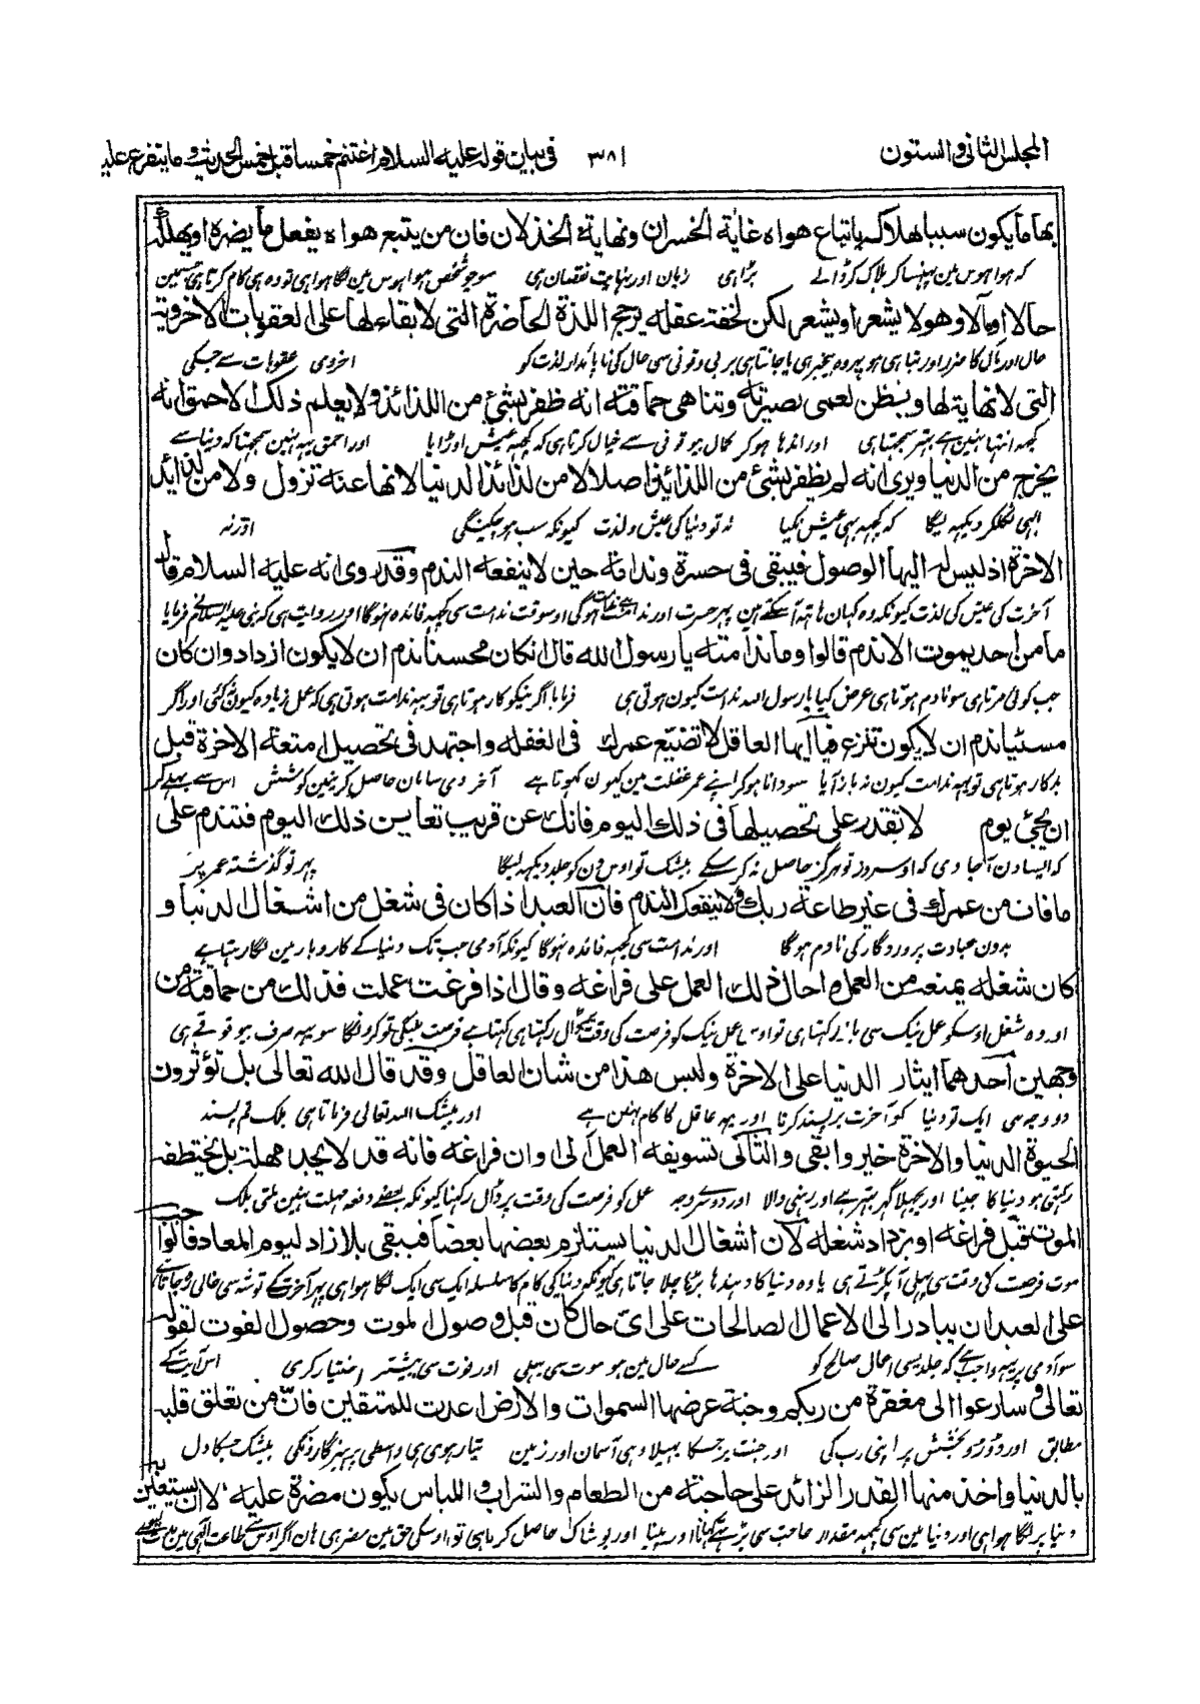 المجلس الثانى والستون ٣٨١ فى بيان قوله عليه السلام اغتنم خمسا قبل خمس الحديث وما يتفرع عليه
بها ما يكون سببا هلاكه باتباع هواه غاية الخسران ونهاية الخذلان فان من يتبع هواه يفعل ما يضره او يهلكه
كہ ہوا ہوس مین پہنسا کر ہلاک کر ڈالے بڑا ہی زیان اور نہایت نقصان ہی سو جو شخص ہوا ہوس مین لگا ہوا ہی تو وہ ہی کام کرتا ہی جسمین
حالا او مآلا وهو لا يشعر او يشعر لكن لخفة عقله يرجح اللذة الحاضرة التى لا بقاء لها على العقوبات الاخروية
حال اور مآل کا ضرر اور تباہی ہو پہر وہ بیخبر ہی یا جانتا ہی پر بی وقوفی سی حال کی ناپائدار لذت کو اخروی عقوبات سے جسکی
التى لا نهاية لها ويظن لعمى بصيرته وتناهى حماقته انه ظفر بشئ من اللذائذ ولا يعلم ذلك الاحمق انه
کچہہ انتہا نہین ہے بہتر سمجہتا ہی اور اندہا ہو کر کمال بیوقوفی سے خیال کرتا ہی کہ کچہہ عیش اوڑایا اور احمق یہہ نہین سمجہتا کہ دنیا سے
يخرج من الدنيا ويرى انه لم يظفر بشئ من اللذائذ اصلا لا من لذائذ الدنيا لانها عنه تزول ولا من لذائذ
ابہی نکلکر دیکہہ لیگا کہ کچہہ بہی عیش نکیا نہ تو دنیا کی عیش و لذت کیونکہ سب ہو چکینگی اور نہ
الاخرة اذ ليس له اليها الوصول فيبقى فى حسرة وندامة حين لا ينفعه الندم وقد روى انه عليه السلام قال
آخرت کی عیش کی لذت کیونکہ وہ کہان ہاتہہ آسکتے ہین پہر حسرت اور ندامت ہوگی اوسوقت ندامت سی کچہہ فائدہ نہوگا اور روایت ہی کہ نبی علیہ السلام نے فرمایا
ما من احد يموت الا ندم قالوا وما ندامته يا رسول الله قال ان كان محسنا ندم ان لا يكون ازداد وان كان
جب کوئی مرتا ہی سو نادم ہوتا ہی عرض کیا یا رسول اللہ ندامت کیون ہوتی ہی فرمایا اگر نیکو کار ہوتا ہی تو یہہ ندامت ہوتی ہی کہ عمل زیادہ کیون نکئی اور اگر
مسيئا ندم ان لا يكون نزع فيا ايها العاقل لا تضيع عمرك فى الغفلة واجتهد فى تحصيل امتعة الاخرة قبل
بدکار ہوتا ہی تو یہہ ندامت کیون نہ باز آیا سو دانا ہو کر اپنے عمر غفلت مین کیون کہوتا ہے آخروی سامان حاصل کرنیمین کوشش اس سے پہلے کر
ان يجئ يوم لا تقدر على تحصيلها فى ذلك اليوم فانك عن قريب تعاين ذلك اليوم فتندم على
کہ ایسا دن آ جاوی کہ اوسروز تو ہرگز حاصل نہ کر سکے بیشک تو اوس دن کو جلد دیکہہ لیگا پہر تو گذشتہ عمر پر
ما فات من عمرك فى غير طاعة ربك ولا ينفعك الندم فان العبد اذا كان فى شغل من اشغال الدنيا و
بدون عبادت پروردگار کی نادم ہوگا اور ندامت سی کچہہ فائدہ نہوگا کیونکہ آدمی جب تک دنیا کے کاروبار مین لگا رہتا ہے
كان شغله يمنعه من العمل واحال ذلك العمل على فراغه وقال اذا فرغت عملت فذلك من حماقته من
اور وہ شغل اوسکو عمل نیک سی باز رکہتا ہی تو اوس عمل نیک کو فرصت کی وقت پر ڈال رکہتا ہی کہتا ہے فرصت ملیگی تو کرونگا سو یہہ صرف بیوقوفے ہی
وجهين احدهما ايثار الدنيا على الاخرة وليس هذا من شان العاقل وقد قال الله تعالى بل تؤثرون
دو وجہ سی ایک تو دنیا کو آخرت پر پسند کرنا اور یہہ عاقل کا کام نہین ہے اور بیشک اللہ تعالی فرماتا ہی بلکہ تم پسند
الحيوة الدنيا والاخرة خير وابقى والثانى تسويفه العمل الى اوان فراغه فانه قد لا يجد مهلة بل يختطفه
رکہتی ہو دنیا کا جینا اور پچہلا گہر بہتر ہے اور رہنی والا اور دوسرے وجہ عمل کو فرصت کی وقت پر ڈال رکہنا کیونکہ بعضے دفعہ مہلت نہین ملتی بلکہ
الموت قبل فراغه او يزداد شغله لان اشغال الدنيا يستلزم بعضها بعضا فيبقى بلا زاد ليوم المعاد فالواجب
موت فرصت کی وقت سی پہلی آ پکڑتے ہی یا وہ دنیا کا دہندا بڑہتا چلا جاتا ہی کیونکہ دنیا کی کام کا سلسلہ ایک سی ایک لگا ہوا ہی پہر آخرت کے توشہ سی خالی رہجاتا ہے
على العبد ان يبادر الى الاعمال الصالحات على اى حال كان قبل وصول الموت وحصول الفوت لقوله
سو آدمی پر یہہ واجب ہے کہ جلدیسی اعمال صالح کو کسے حال مین ہو موت سی پہلی اور فوت سی پیشتر اختیار کری اس آیت کے
تعالى وسارعوا الى مغفرة من ربكم وجنة عرضها السموات والارض اعدت للمتقين فان من تعلق قلبه
مطابق اور دوڑو بخشش پر اپنی رب کی اور جنت پر جسکا پہیلاو ہی آسمان اور زمین تیار ہوی ہی واسطی پرہیزگارونکی بیشک جسکا دل
بالدنيا واخذ منها القدر الزائد على حاجته من الطعام والشراب واللباس يكون مضرة عليه الا ان يستعين به
دنیا پر لگا ہوا ہی اور دنیا مین سی کچہہ مقدار حاجت سی بڑہکے کہانا اور پینا اور پوشاک حاصل کرتا ہی تو اوسکی حق مین مضر ہی ہان اگر اوس سے طاعت الہی مین